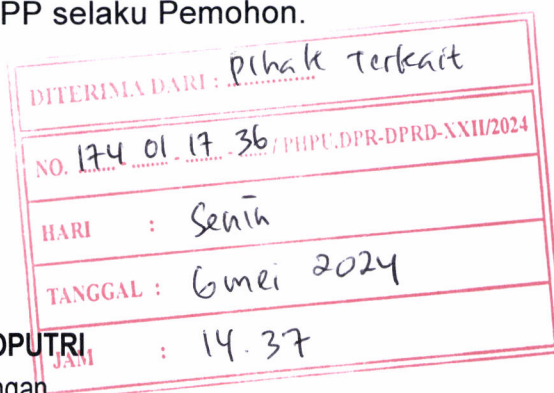 PP selaku Pemohon.
DITERIMA DARI : Pihak Terkait
NO. 174 01 17 36 / PHPU.DPR-DPRD-XXII/2024
HARI : Senin
TANGGAL : 6 mei 2024
OPUTRI
JAM : 14.37
ngan